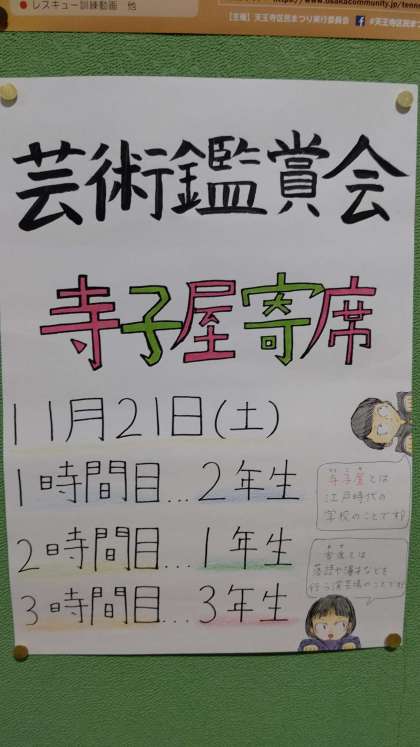 ● レスキュー訓練動画 他
https://www.osakacommunity.jp/tenno
【主催】天王寺区民まつり実行委員会 #天王寺区民まつ
芸術鑑賞会
寺子屋寄席
11月21日(土)
1時間目…2年生
2時間目…1年生
3時間目…3年生
てらこや
寺子屋とは
江戸時代の
学校のことです
よせ
寄席とは
落語や漫才などを
行う演芸場のことです